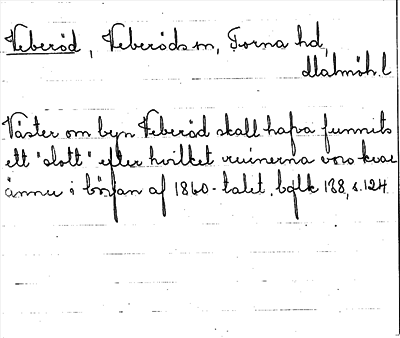 Veberöd, Veberöds sn, Torna hd,
Malmöh. l
Väster om byn Veberöd skall hafva funnits
ett "slott" efter hvilket ruinerna voro kvar
ännu i början af 1860-talet.